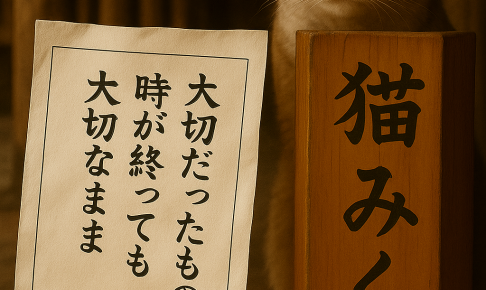 猫みく
大切だったもの
時が終っても
大切なまま